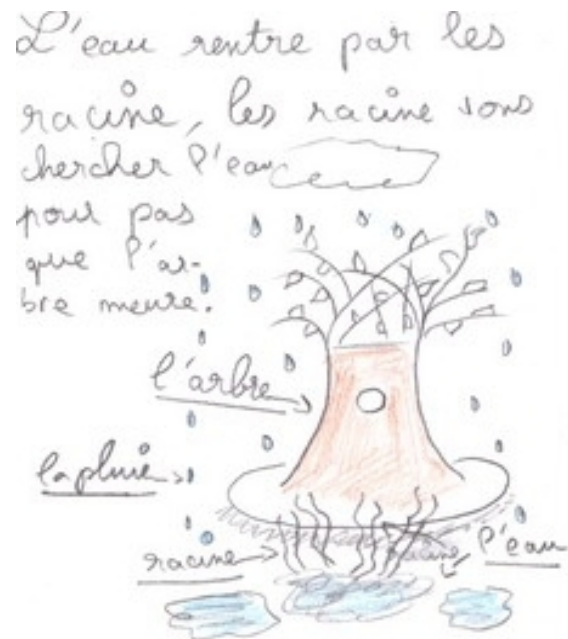 L'eau rentre par les
racine, les racine vons
chercher l'eau
pour pas
que l'ar-
bre meure.
l'arbre
la pluie
racine
racine
l'eau